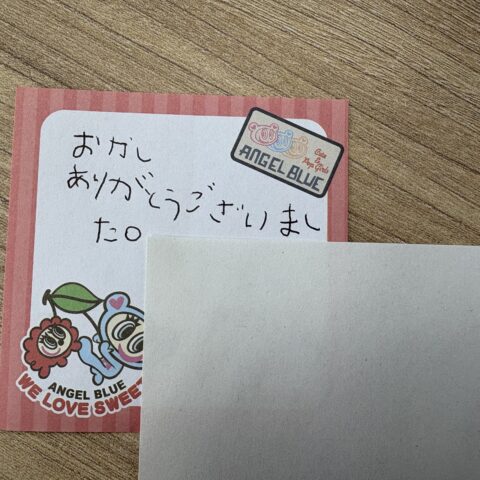 おかし
ありがとうございまし
た。
Cute & Pop Girls
ANGEL BLUE
ANGEL BLUE
WE LOVE SWEET